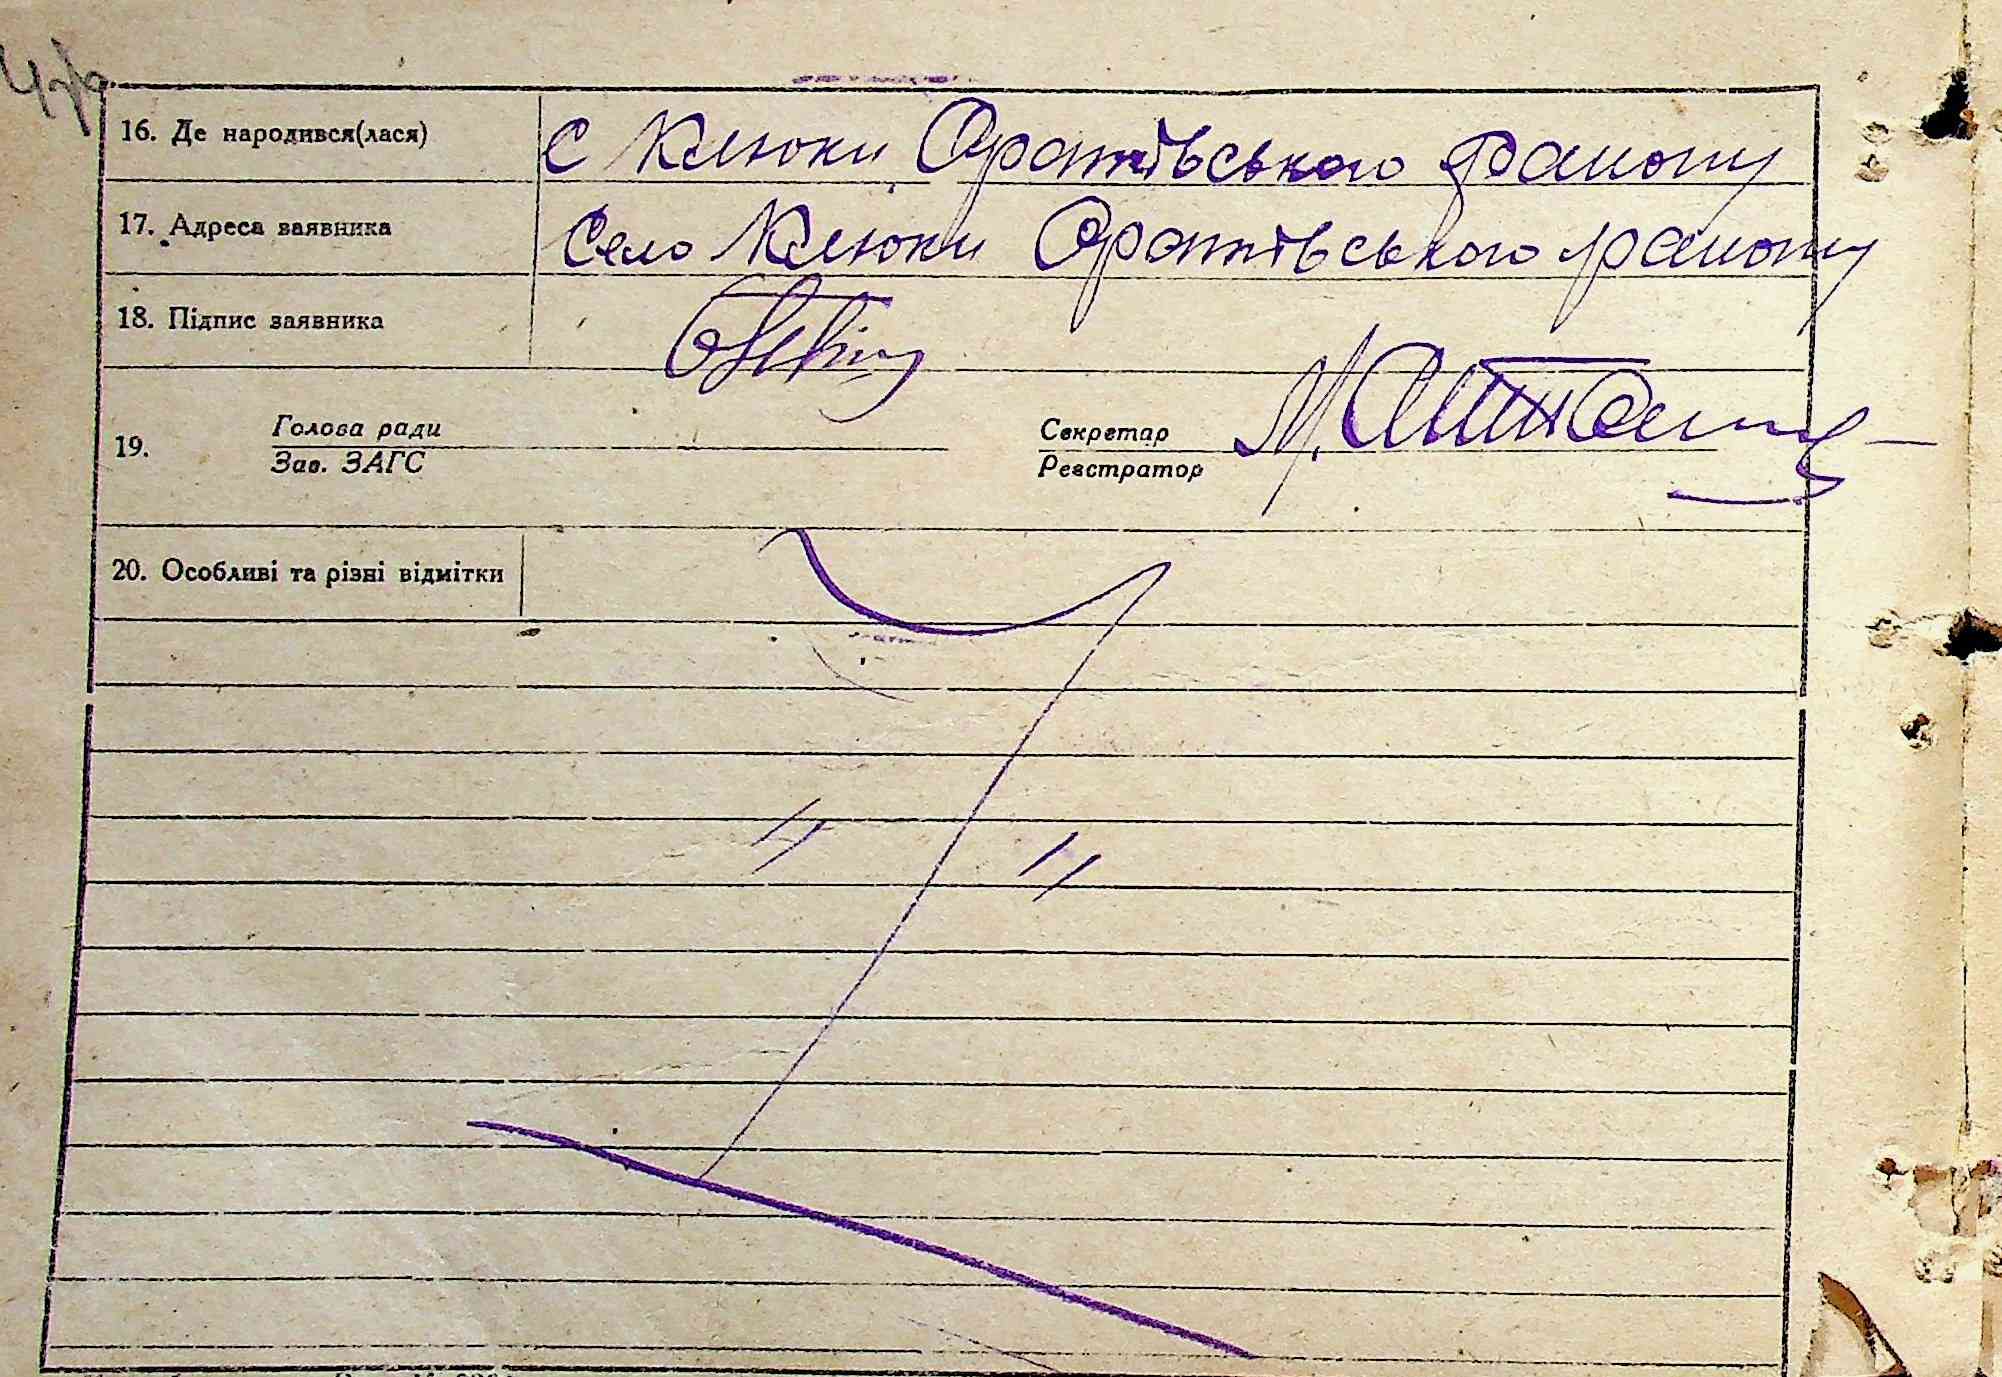 16. Де народився(лася) с Клюки Оратівського району
17. Адреса заявника Село Клюки Оратівського району
18. Підпис заявника
19. Голова ради Секретар
Зав. ЗАГС Реєстратор
20. Особливі та різні відмітки